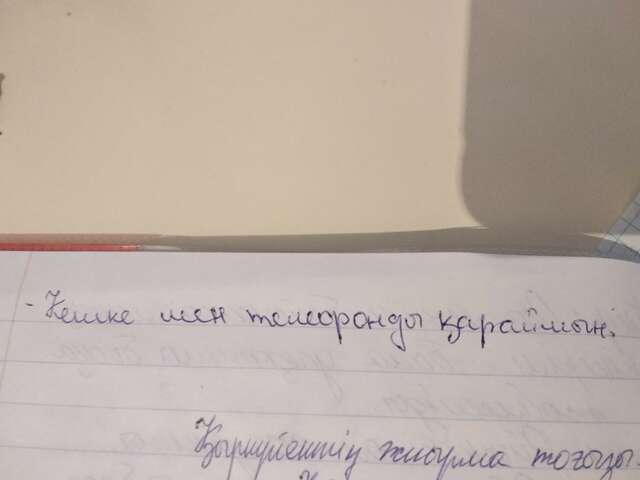 - Кешке мен телефонды қараймын.
Қыркүйектің жиырма тоғызы.